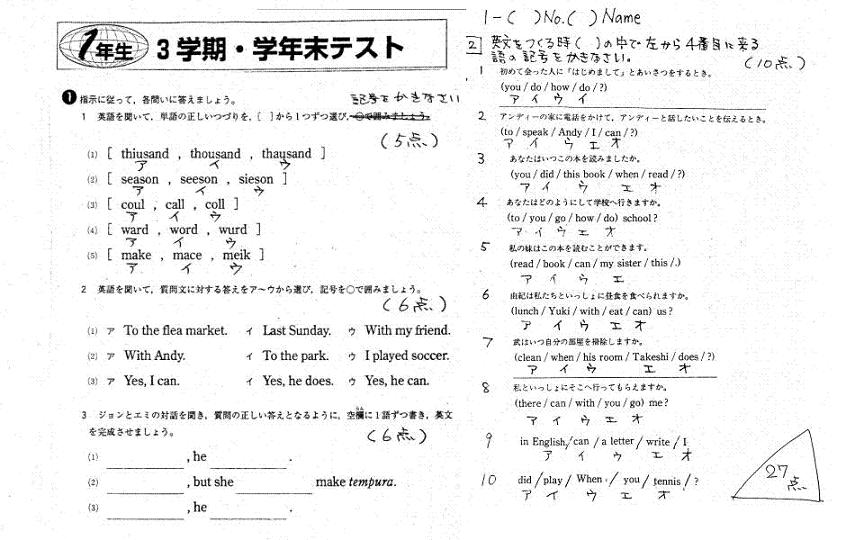 1年生 3学期・学年末テスト
❶ 指示に従って，各問いに答えましょう。 記号をかきなさい
1 英語を聞いて，単語の正しいつづりを，[ ]から1つずつ選び，○で囲みましょう。
(5点)
(1) [ thiusand , thousand , thausand ]
ア イ ウ
(2) [ season , seeson , sieson ]
ア イ ウ
(3) [ coul , call , coll ]
ア イ ウ
(4) [ ward , word , wurd ]
ア イ ウ
(5) [ make , mace , meik ]
ア イ ウ
2 英語を聞いて，質問文に対する答えをア〜ウから選び，記号を○で囲みましょう。
(6点)
(1) ア To the flea market. イ Last Sunday. ウ With my friend.
(2) ア With Andy. イ To the park. ウ I played soccer.
(3) ア Yes, I can. イ Yes, he does. ウ Yes, he can.
3 ジョンとエミの対話を聞き，質問の正しい答えとなるように，空欄に1語ずつ書き，英文
を完成させましょう。
(6点)
(1) , he .
(2) , but she make tempura.
(3) , he .
1-( )No.( ) Name
2 英文をつくる時( )の中で左から4番目に来る
語の記号をかきなさい。 (10点)
1 初めて会った人に「はじめまして」とあいさつをするとき。
(you / do / how / do / ?)
ア イ ウ イ
2 アンディーの家に電話をかけて，アンディーと話したいことを伝えるとき。
(to / speak / Andy / I / can / ?)
ア イ ウ エ オ
3 あなたはいつこの本を読みましたか。
(you / did / this book / when / read / ?)
ア イ ウ エ オ
4 あなたはどのようにして学校へ行きますか。
(to / you / go / how / do) school?
ア イ ウ エ オ
5 私の妹はこの本を読むことができます。
(read / book / can / my sister / this /.)
ア イ ウ エ
6 由紀は私たちといっしょに昼食を食べられますか。
(lunch / Yuki / with / eat / can) us?
ア イ ウ エ オ
7 武はいつ自分の部屋を掃除しますか。
(clean / when / his room / Takeshi / does / ?)
ア イ ウ エ オ
8 私といっしょにそこへ行ってもらえますか。
(there / can / with / you / go) me?
ア イ ウ エ オ
9 in English/can / a letter / write / I
ア イ ウ エ オ
10 did / play / When / you / tennis / ?
ア イ ウ エ オ
27点